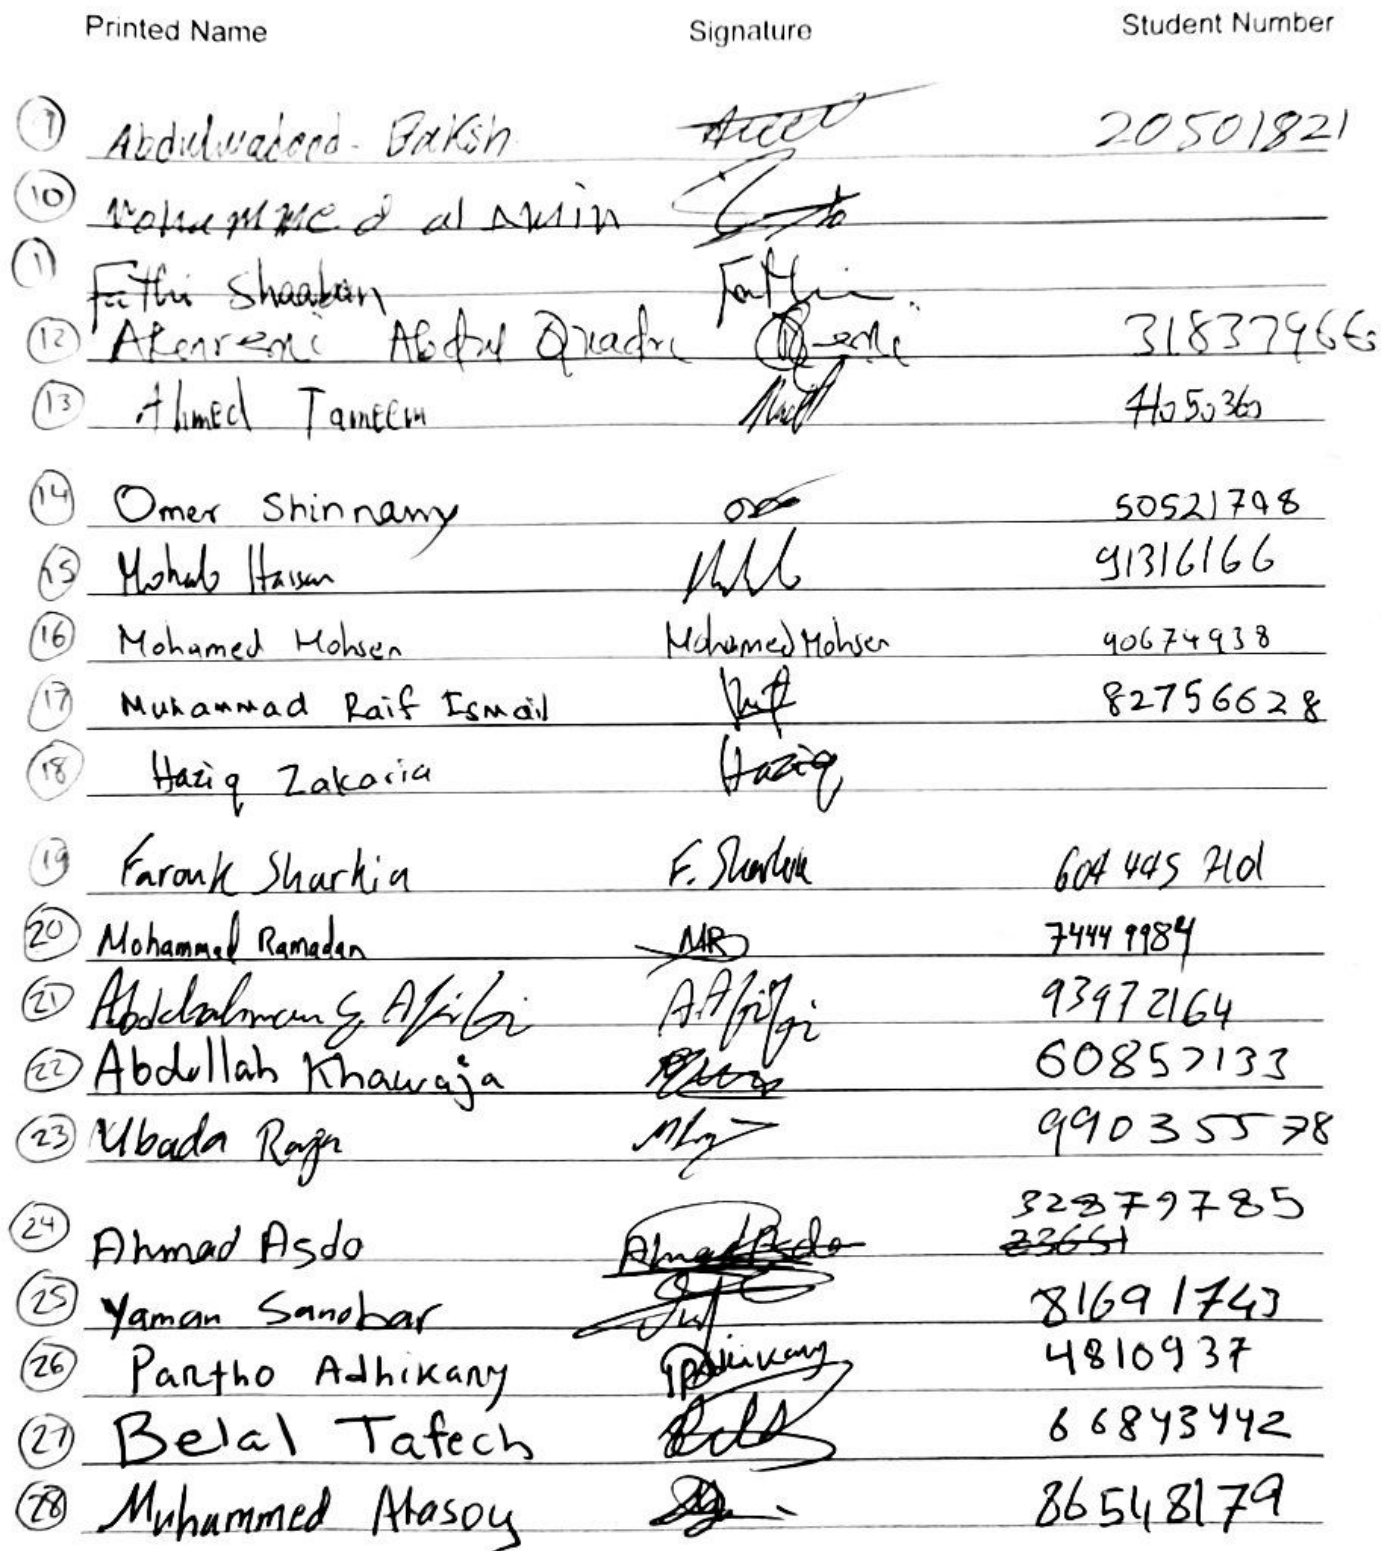 Printed Name Signature Student Number
9 Abdulwadood Baksh 20501821
10 Mohammed al Amin
11 Fathi Shaaban Fathi
12 Abdul Quadri 318379660
13 Ahmed Tameem
14 Omer Shinnawy 50521798
15 Mohab Hassan 91316166
16 Mohamed Mohsen Mohamed Mohsen 90674938
17 Muhammad Raif Ismail 82756628
18 Haziq Zakaria Haziq
19 Farouk Sharkia F. Sharkia 604 445
20 Mohammed Ramadan MR 74449984
21 Afifi A. Afifi 93972164
22 Abdullah Khawaja 60857133
23 Ubada Raja 99035578
32879785
24 Ahmad Asdo Ahmad Asdo
25 Yaman Sanobar 81691743
26 Partho Adhikary Adhikary 4810937
27 Belal Tafech 66843442
28 Muhammed Atasoy 86548179